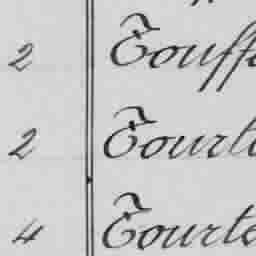 2 Touff
2 Tourt
4 Tourte